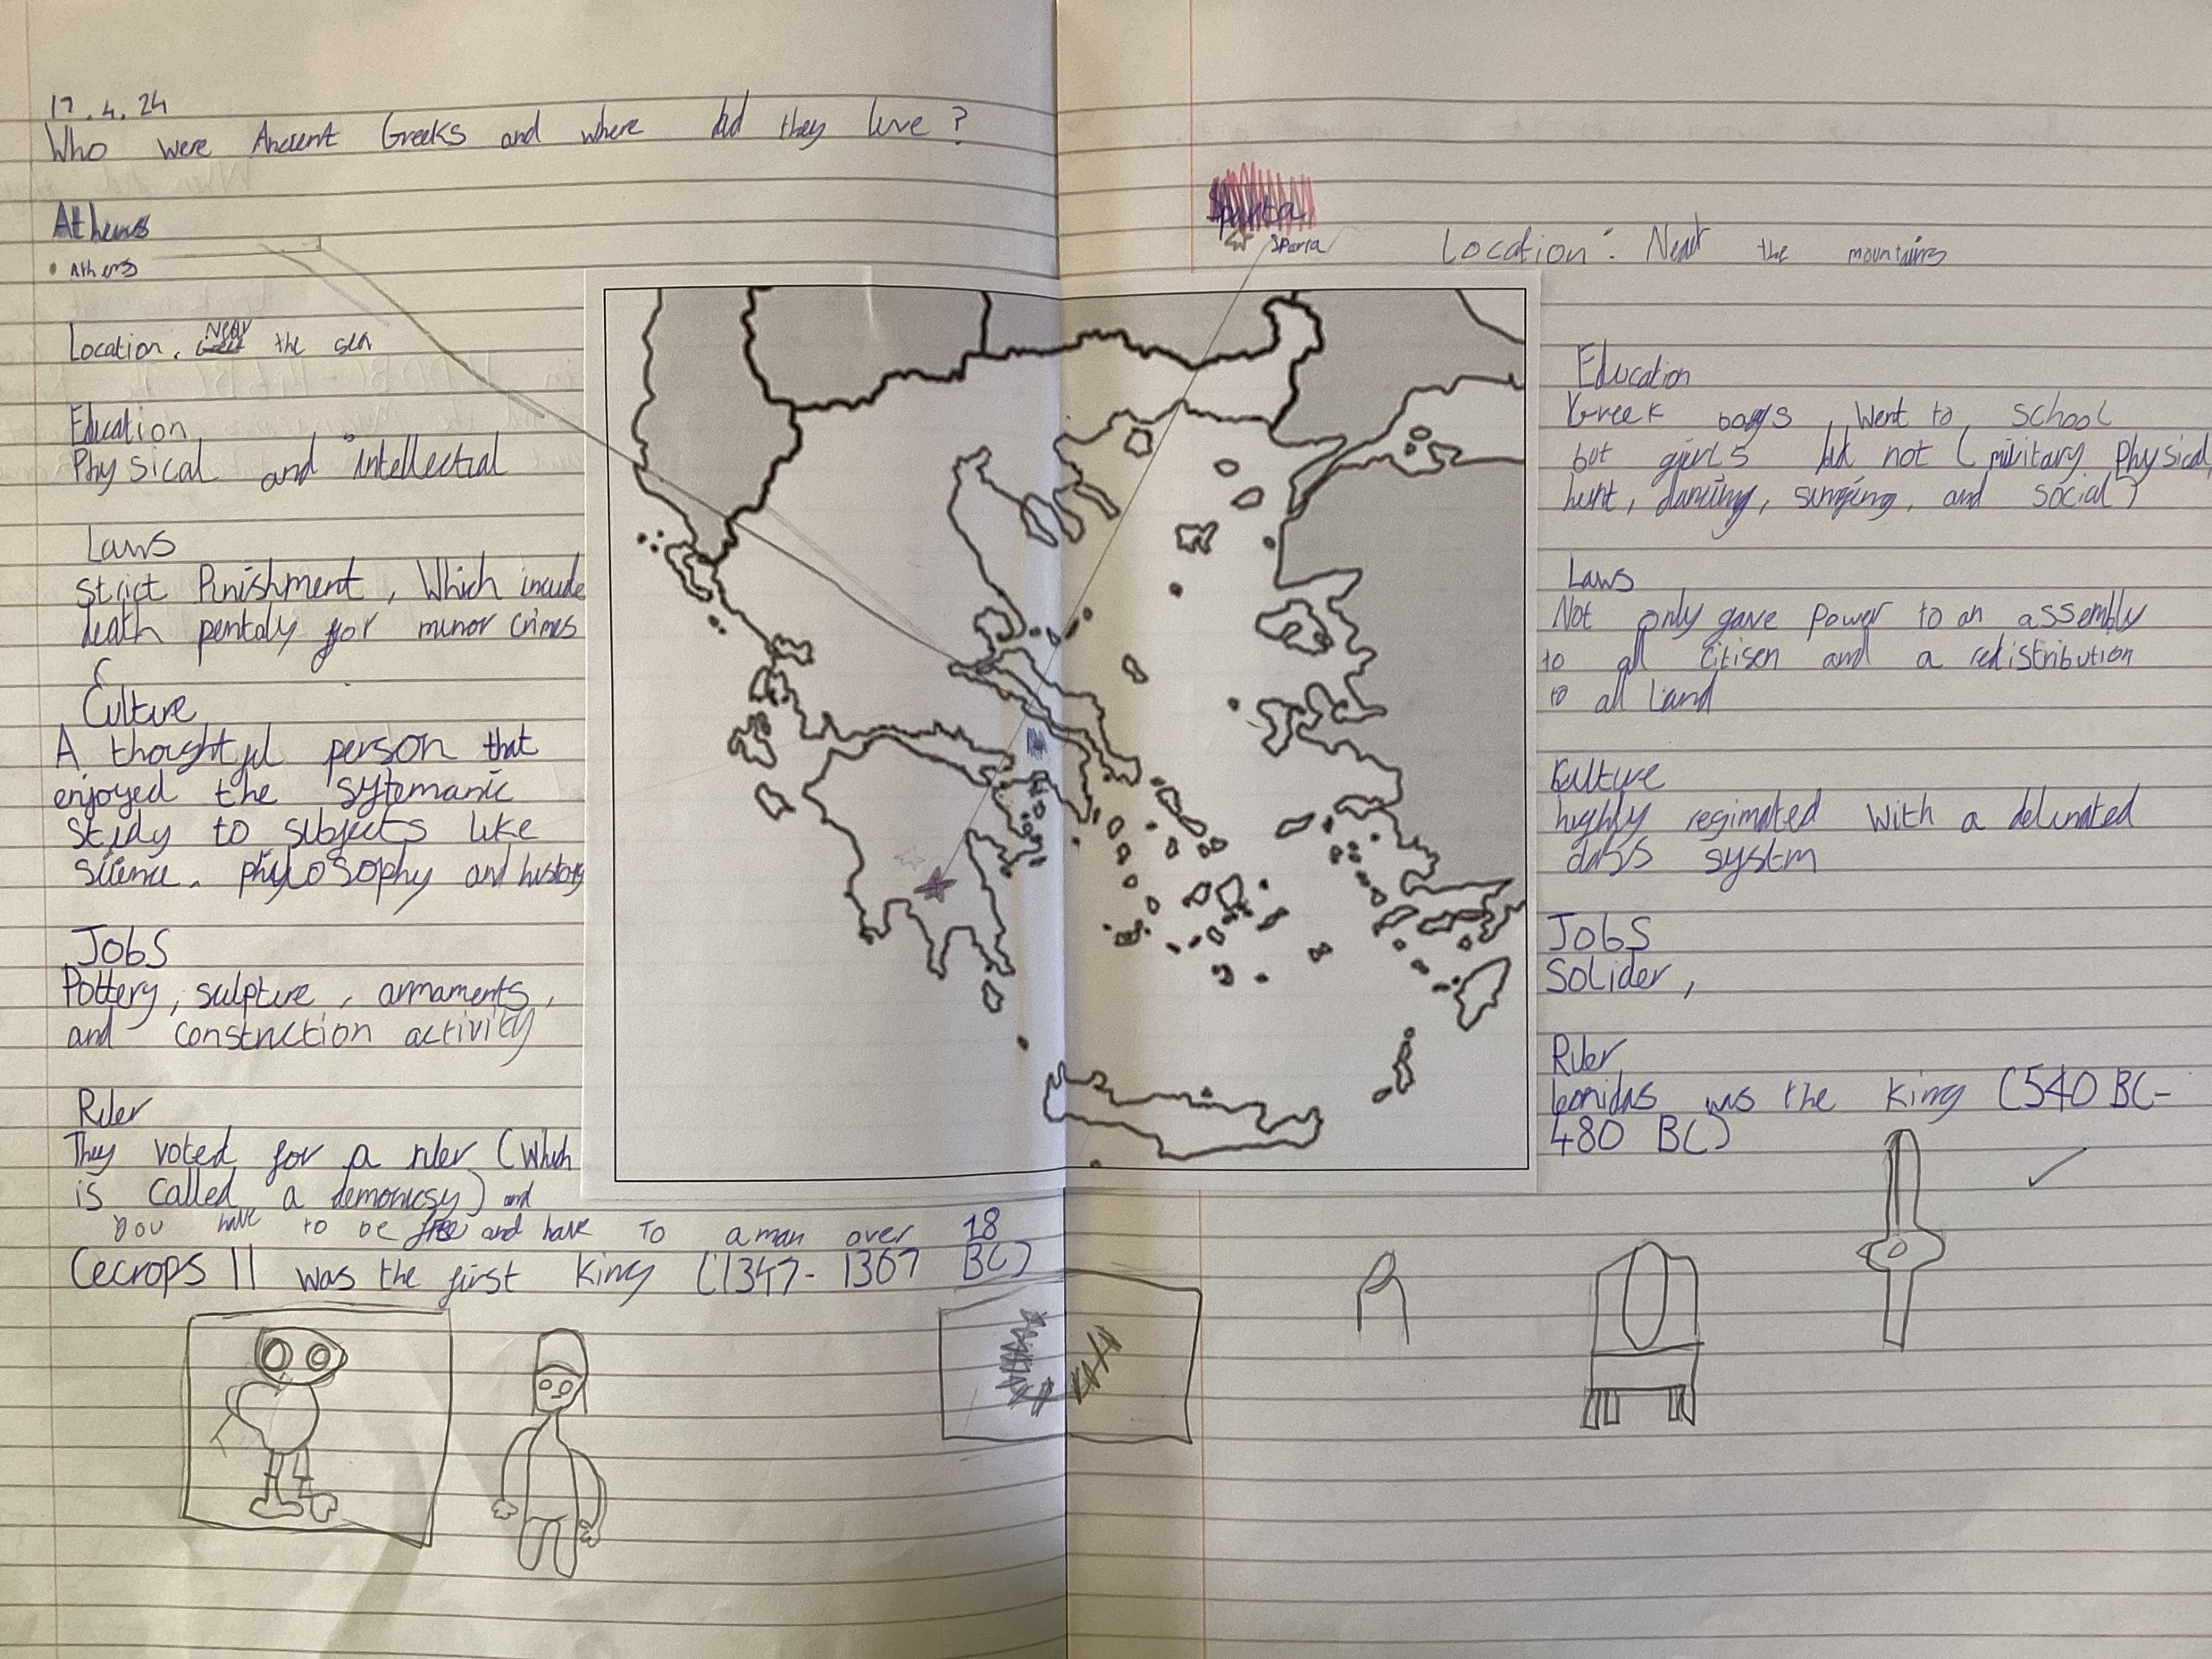 17.4.24
Who were Ancient Greeks and where did they live?
Athens
• Athens
Location. Near the sea
Education
Physical and intellectial
Laws
strict Punishment, Which incude
death pentaly for minor crimes
Culture
A thoughtful person that
enjoyed the sytemanic
study to subjects like
science. phylosophy and history
Jobs
Pottery, sulpture, armaments,
and construction activity
Ruler
They voted for a ruler (Which
is called a demoricsy) and
you have to be free and have to a man over 18
Cecrops II was the first King (1347-1367 BC)
Sparta
Sparta
Location: Near the mountains
Education
Greek boys went to school
but girls did not (military, Physical,
hunt, dancing, singing, and social)
Laws
Not only gave power to an assembly
to all citisen and a redistribution
to all Land
Culture
highly regimated with a delinated
system
Jobs
Solider,
Ruler
leonidas was the King (540 BC-
480 BC)